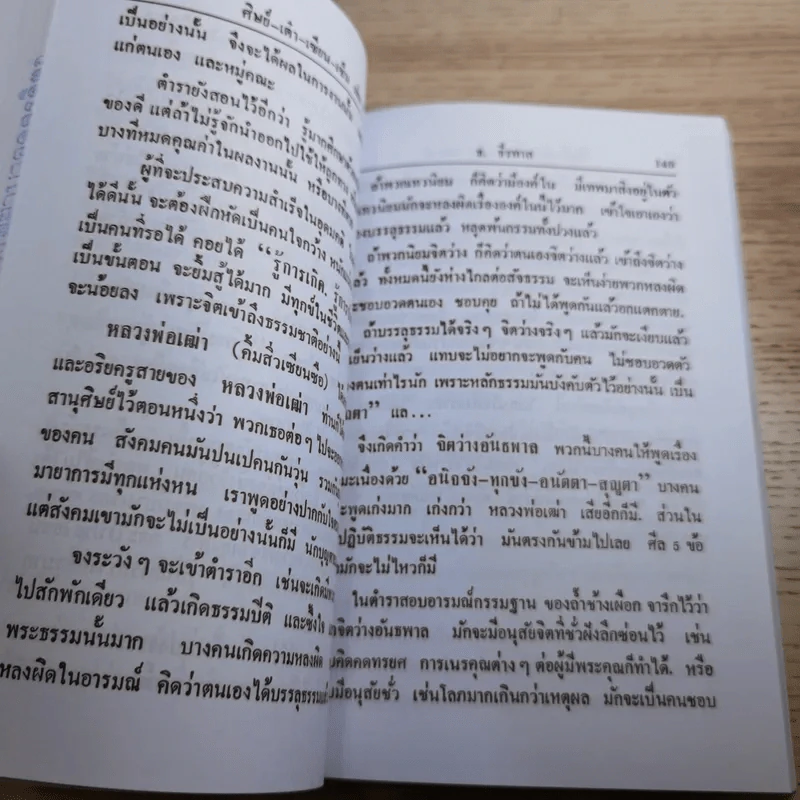 ศิษย์-เต๋า-เซียน-เซ็น
เป็นอย่างนั้น จึงจะได้ผลในการงานนั้น
แก่ตนเอง และหมู่คณะ
ตำรายังสอนไว้อีกว่า รู้มากศึกษามาก
ของดี แต่ถ้าไม่รู้จักนำออกไปใช้ให้ถูกทาง
บางที่หมดคุณค่าในผลงานนั้น หรือบาง
ผู้ที่จะประสบความสำเร็จในอุดมคติ
ได้ดีนั้น จะต้องฝึกหัดเป็นคนใจกว้าง หนัก
เป็นคนที่รอได้ คอยได้ "รู้การเกิด, รู้
เป็นขั้นตอน จะยิ้มสู้ได้มาก มีทุกข์ใน
จะน้อยลง เพราะจิตเข้าถึงธรรมชาติอย่างนี้
หลวงพ่อเฒ่า (คิ้มสิ่วเซียนซือ)
และอริยครูสายของ หลวงพ่อเฒ่า ท่าน
สานุศิษย์ไว้ตอนหนึ่งว่า พวกเธอต่อๆ ไปจะ
ของคน สังคมคนมันปนเปคนกันวุ่น รวม
มายาการมีทุกแห่งหน เราพูดอย่างปากกับ
แต่สังคมเขามักจะไม่เป็นอย่างนั้นก็มี
จงระวังๆ จะเข้าตำราอีก เช่นจะเกิด
ไปสักพักเดียว แล้วเกิดธรรมปีติ และซึ้งใจ
พระธรรมนั้นมาก บางคนเกิดความหลงผิด
หลงผิดในอารมณ์ คิดว่าตนเองได้บรรลุธรรม
ช. ธีรพาส
ถ้าพวกเทวนิยม ก็คิดว่ามีองค์ใน มีเทพมาสิงอยู่ในตัว
เทวนิยมมักจะหลงผิดเรื่ององค์ในนี้ไว้มาก เข้าใจเอาเองว่า
บรรลุธรรมแล้ว หลุดพ้นกรรมทั้งปวงแล้ว
ถ้าพวกนิยมจิตว่าง ก็คิดว่าตนเองจิตว่างแล้ว เข้าถึงจิตว่าง
ทั้งหมดนี้ยังห่างไกลต่อสัจธรรม จะเห็นง่ายพวกหลงผิด
จะชอบอวดตนเอง ชอบคุย ถ้าไม่ได้พูดกันแล้วอกแตกตาย.
ถ้าบรรลุธรรมได้จริงๆ จิตว่างจริงๆ แล้วมักจะเงียบแล้ว
เย็นว่างแล้ว แทบจะไม่อยากจะพูดกับคน ไม่ชอบอวดตัว
คนเท่าไรนัก เพราะหลักธรรมมันบังคับตัวไว้อย่างนั้น เป็น
" แล...
จึงเกิดคำว่า จิตว่างอันธพาล พวกนี้บางคนให้พูดเรื่อง
เนื่องด้วย "อนิจจัง-ทุกขัง-อนัตตา-สุญตา" บางคน
จะพูดเก่งมาก เก่งกว่า หลวงพ่อเฒ่า เสียอีกก็มี. ส่วนใน
ปฏิบัติธรรมจะเห็นได้ว่า มันตรงกันข้ามไปเลย ศีล 5 ข้อ
มักจะไม่ไหวก็มี
ในตำราสอบอารมณ์กรรมฐาน ของถ้ำช้างเผือก จารึกไว้ว่า
จิตว่างอันธพาล มักจะมีอนุสัยจิตที่ชั่วฝังลึกซ่อนไว้ เช่น
คิดคดทรยศ การเนรคุณต่างๆ ต่อผู้มีพระคุณก็ทำได้. หรือ
มีอนุสัยชั่ว เช่นโลภมากเกินกว่าเหตุผล มักจะเป็นคนชอบ